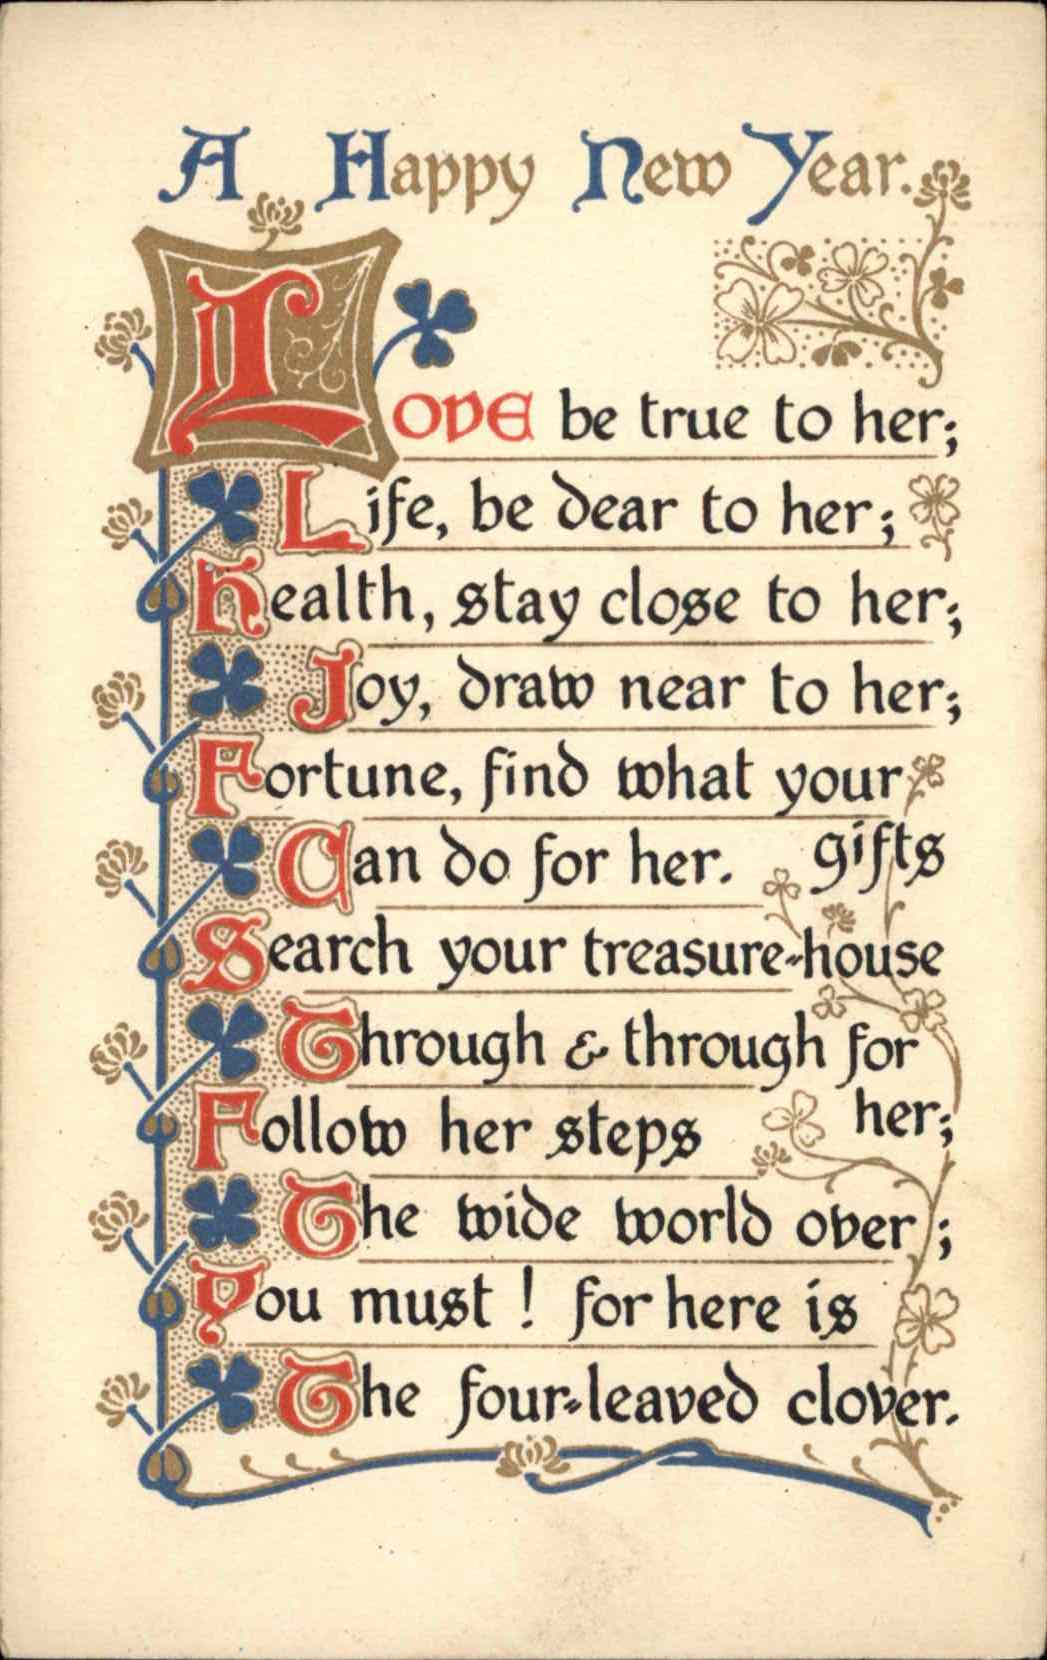 A Happy New Year.
LOVE be true to her;
Life, be dear to her;
Health, stay close to her;
Joy, draw near to her;
Fortune, find what your
gifts
Can do for her.
Search your treasure-house
Through & through for
her;
Follow her steps
The wide world over;
You must! for here is
The four-leaved clover.